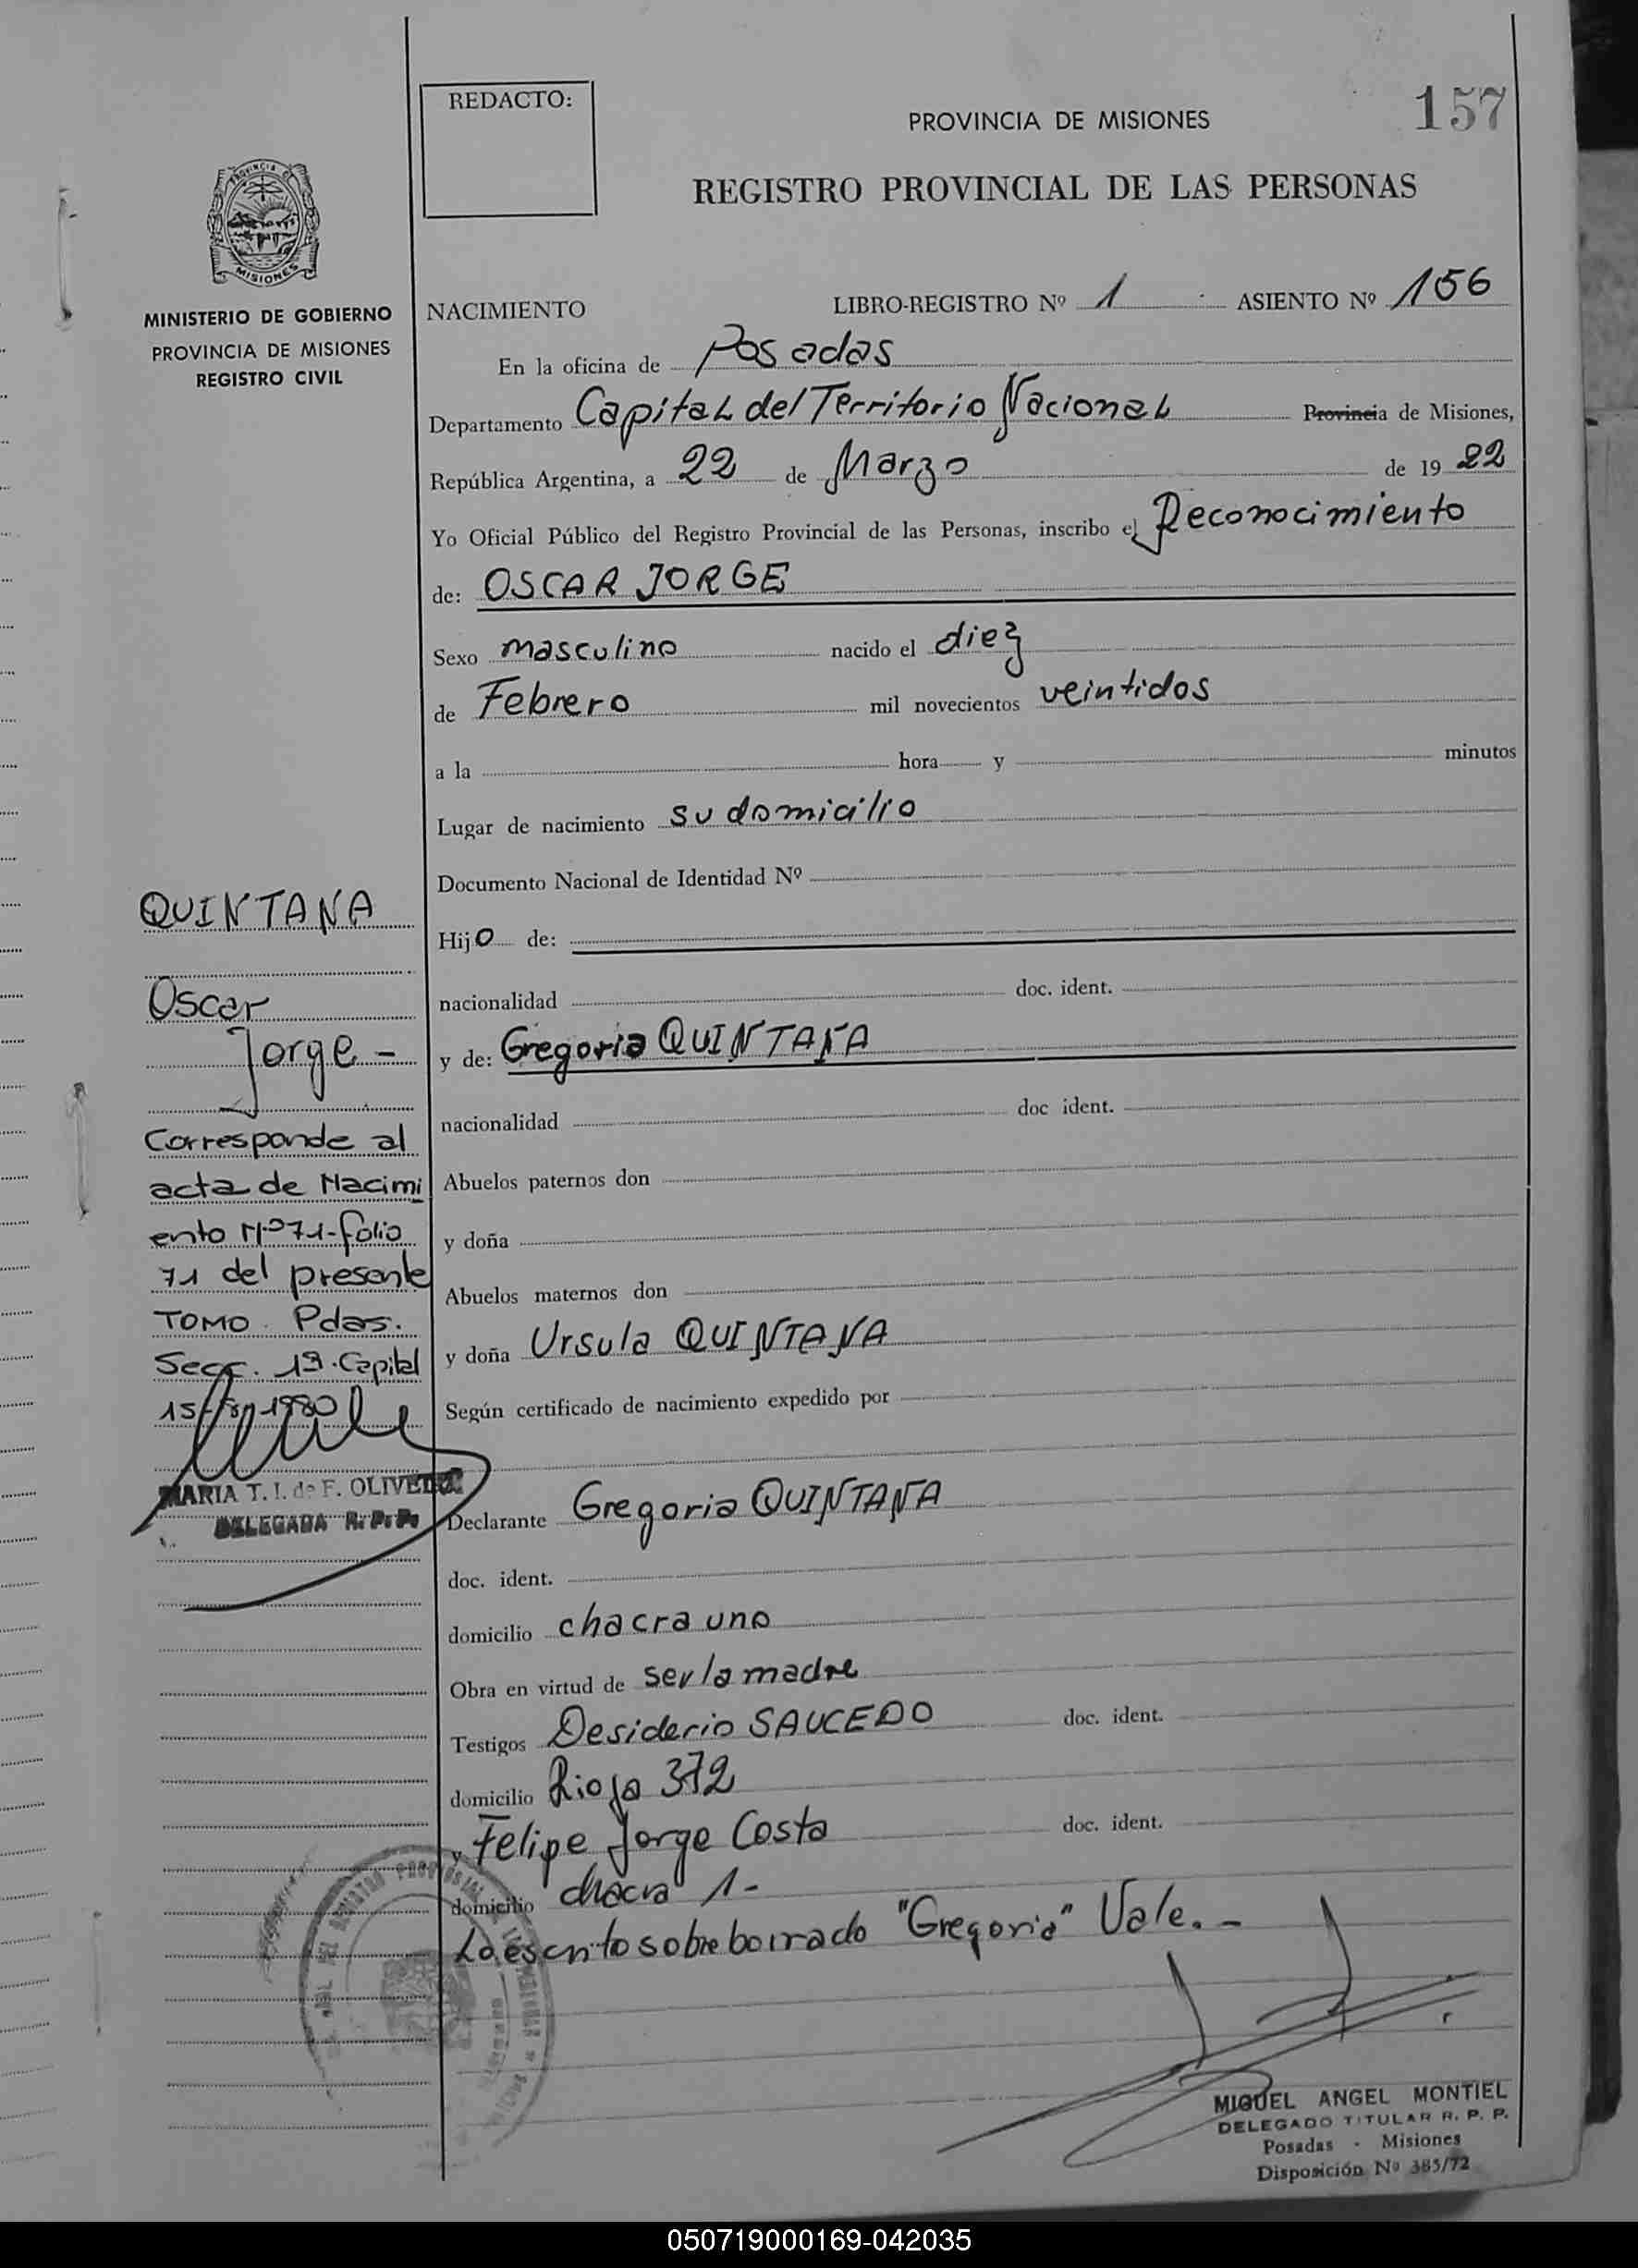 REDACTO:
PROVINCIA DE MISIONES
157
REGISTRO PROVINCIAL DE LAS PERSONAS
MISIONES
MINISTERIO DE GOBIERNO
PROVINCIA DE MISIONES
REGISTRO CIVIL
NACIMIENTO LIBRO-REGISTRO Nº 1 ASIENTO Nº 156
En la oficina de Posadas
Departamento Capital del Territorio Nacional Provincia de Misiones,
República Argentina, a 22 de Marzo de 1922
Yo Oficial Público del Registro Provincial de las Personas, inscribo el Reconocimiento
de: OSCAR JORGE
Sexo masculino nacido el diez
de Febrero mil novecientos veintidos
a la hora y minutos
Lugar de nacimiento su domicilio
Documento Nacional de Identidad Nº
Hijo de:
nacionalidad doc. ident.
y de: Gregoria QUINTANA
nacionalidad doc ident.
Abuelos paternos don
y doña
Abuelos maternos don
y doña Ursula QUINTANA
Según certificado de nacimiento expedido por
Declarante Gregoria QUINTANA
doc. ident.
domicilio chacra uno
Obra en virtud de ser la madre
Testigos Desiderio SAUCEDO doc. ident.
domicilio Rioja 372
y Felipe Jorge Costa doc. ident.
domicilio chacra 1-
Lo escrito sobre borrado "Gregoria" Vale.-
QUINTANA
Oscar
Jorge -
Corresponde al
acta de Nacimi
ento Nº 71-folio
71 del presente
TOMO. Pdas.
Secc. 1ª. Capital
15/8/1980
MARIA T. I. de F. OLIVEIRA
DELEGADA R. P. P.
MIGUEL ANGEL MONTIEL
DELEGADO TITULAR R. P. P.
Posadas - Misiones
Disposición Nº 385/72
050719000169-042035